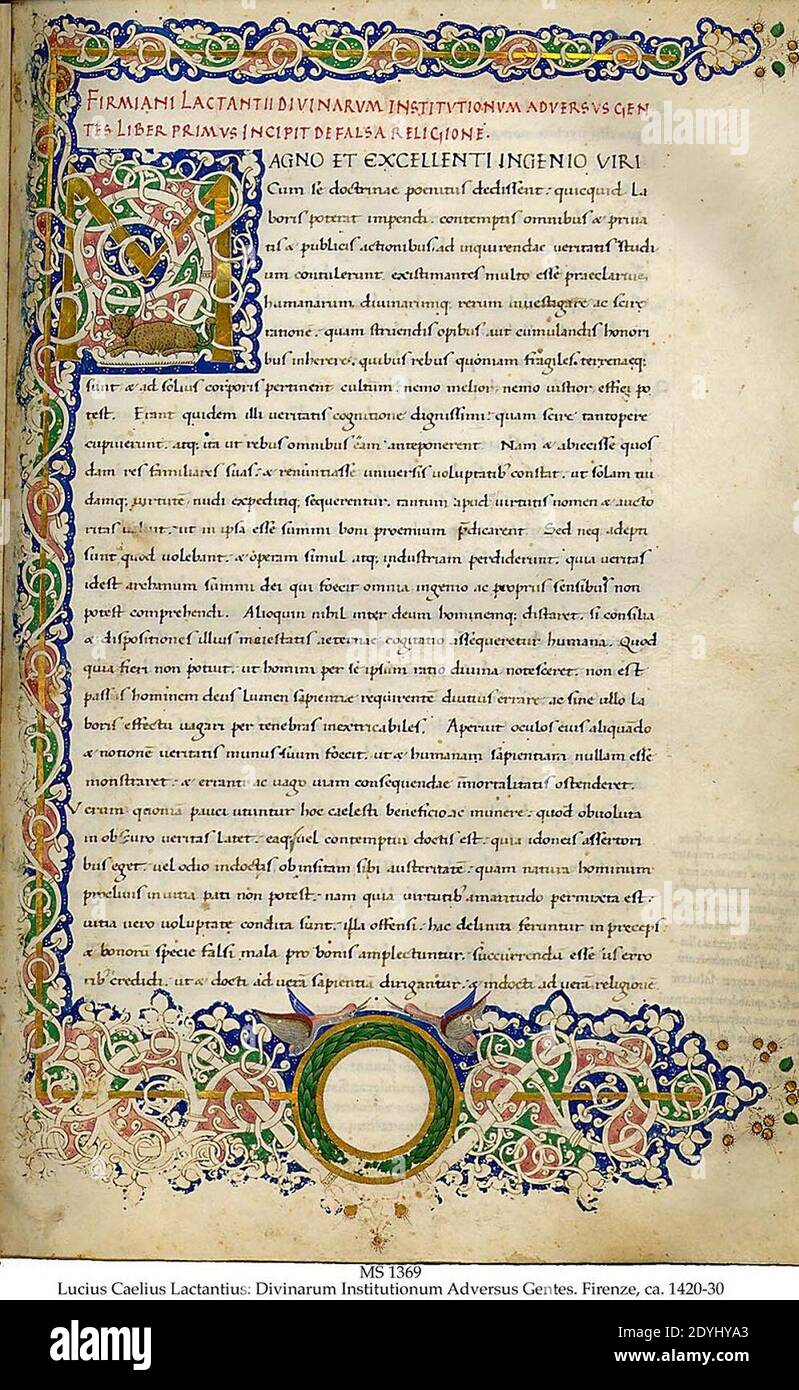 FIRMIANI LACTANTII DIVINARVM INSTITVTIONVM ADVERSVS GEN
TES LIBER PRIMVS INCIPIT DE FALSA RELIGIONE.
MAGNO ET EXCELLENTI INGENIO VIRI
Cum se doctrinae poenitus dedissent: quicquid La
boris poterat impendi. contemptis omnibus & priua
tis & publicis actionibus, ad inquirendae ueritatis studi
um contulerunt. existimantes multo esse praeclarius,
humanarum diuinarumq; rerum inuestigare ac scire
ratione: quam struendis opibus, aut cumulandis honori
bus inherere, quibus rebus quoniam fragiles, terrenaeq;
sunt & ad solius corporis pertinent cultum, nemo melior, nemo iustior effici po
test. Erant quidem illi ueritatis cognitione dignissimi: quam scire tantopere
cupiuerunt. atq; ita ut rebus omnibus eam anteponerent Nam & abiecisse quos
dam res familiares suas: & renuntiasse uniuersis uoluptatib; constat. ut solam nu
damq; uirtutē nudi expeditiq; sequerentur. tantum apud uirtutis nomen & aucto
ritas ualuit. ut in ipsa esse summi boni proemium p̄dicarent. Sed neq; adepti
sunt quod uolebant. & operam simul atq; industriam perdiderunt. quia ueritas
idest archanum summi dei qui foecit omnia ingenio ac propriis sensibus non
potest comprehendi. Alioquin nihil inter deum hominemq; distaret. si consilia
& dispositiones illius maiestatis aeternae cogitatio assequeretur humana. Quod
quia fieri non potuit. ut homini per se ipsum ratio diuina notesceret. non est
passus hominem deus Lumen sapientiae requirentē diutius errare. ac sine ullo La
boris effectu uagari per tenebras inextricabiles. Aperuit oculos eius aliquādo
& notionē ueritatis munus suum foecit. ut & humanam sapientiam nullam esse
monstraret: & erranti ac uago uiam consequendae īmortalitatis ostenderet.
Verum quoniā pauci utuntur hoc caelesti beneficio ac munere: quod obuoluta
in obscuro ueritas Latet. eaq; uel contemptui doctis est: quia idoneis assertori
bus eget. uel odio indoctis ob insitam sibi austeritatē: quam natura hominum
procliuis in uitia pati non potest. nam quia uirtutib; amaritudo permixta est.
uitia uero uoluptate condita sunt. illa offensi: hac deliniti feruntur in preceps
& bonorū specie falsi mala pro bonis amplectuntur. succurrendū esse iis erro
rib; credidi. ut & docti ad uerā sapientiā dirigantur: & indocti ad uerā religionē
MS 1369
Lucius Caelius Lactantius: Divinarum Institutionum Adversus Gentes. Firenze, ca. 1420-30
alamy
Image ID: 2DYHYA3
www.alamy.com